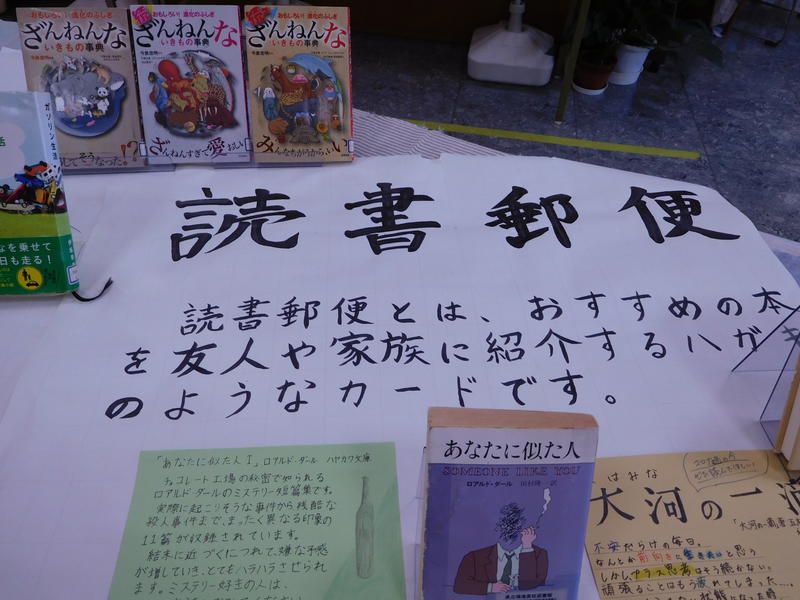 おもしろい!進化のふしぎ
ざんねんな
いきもの事典
おもしろい!進化のふしぎ
ざんねんな
いきもの事典
ざんねんすぎて愛おしい
おもしろい!進化のふしぎ
ざんねんな
いきもの事典
みんなちがうから、いい
ガソリン生活
活
なを乗せて
日も走る!
読書郵便
読書郵便とは、おすすめの本
を友人や家族に紹介するハガキ
のようなカードです。
「あなたに似た人Ⅰ」ロアルド・ダール ハヤカワ文庫
チョコレート工場の秘密で知られる
ロアルド・ダールのミステリー短篇集です。
実際に起こりそうな事件から残酷な
殺人事件まで、まったく異なる印象の
11篇が収録されています。
結末に近づくにつれて、嫌な予感
が増していき、とてもハラハラさせられ
ます。ミステリー好きの人は、
あなたに似た人
SOMEONE LIKE YOU
ロアルド・ダール 田村隆一訳
はみな
大河の一滴
不安だらけの毎日。
なんとか前向きに生きたいと思う
しかし、プラス思考はそう続かない。
頑張ることはもう疲れてしまった…